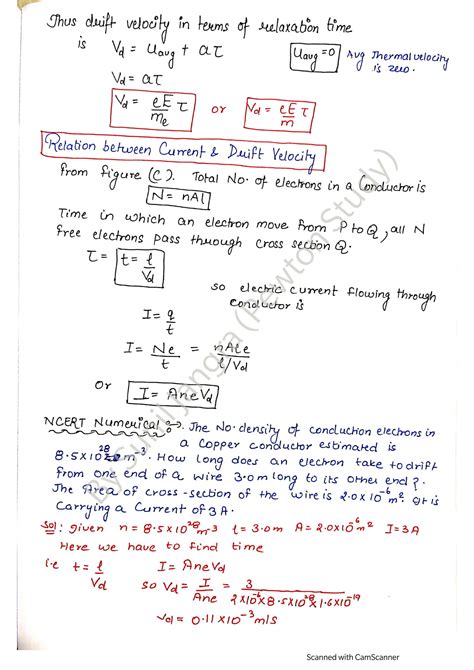 Thus drift velocity in terms of relaxation time
is Vd = Uavg + aτ [Uavg = 0] Avg Thermal velocity is zero.
Vd = aτ
Vd = eE/me τ or Vd = eE/m τ
Relation between Current & Drift Velocity
from figure (C). Total No. of electrons in a Conductor is
N = nAl
Time in which an electron move from P to Q, all N
free electrons pass through cross section Q.
τ = t = l/Vd
so electric current flowing through
conductor is
I = q/t
I = Ne/t = nAle/l/Vd
Or I = AneVd
NCERT Numerical :→. The No. density of conduction electrons in
a Copper conductor estimated is
8.5×10²⁸ m⁻³. How long does an electron take to drift
from one end of a wire 3.0m long to its other end?.
The Area of cross-section of the wire is 2.0×10⁻⁶m². It is
Carrying a Current of 3A.
Sol: given n = 8.5×10²⁸m⁻³ l = 3.0m A = 2.0×10⁻⁶m² I = 3A
Here we have to find time
i.e t = l/Vd I = AneVd so Vd = I/Ane = 3/2×10⁻⁶×8.5×10²⁸×1.6×10⁻¹⁹
Vd = 0.11×10⁻³m/s
By Sunil Jangra (Newton Study)
Scanned with CamScanner